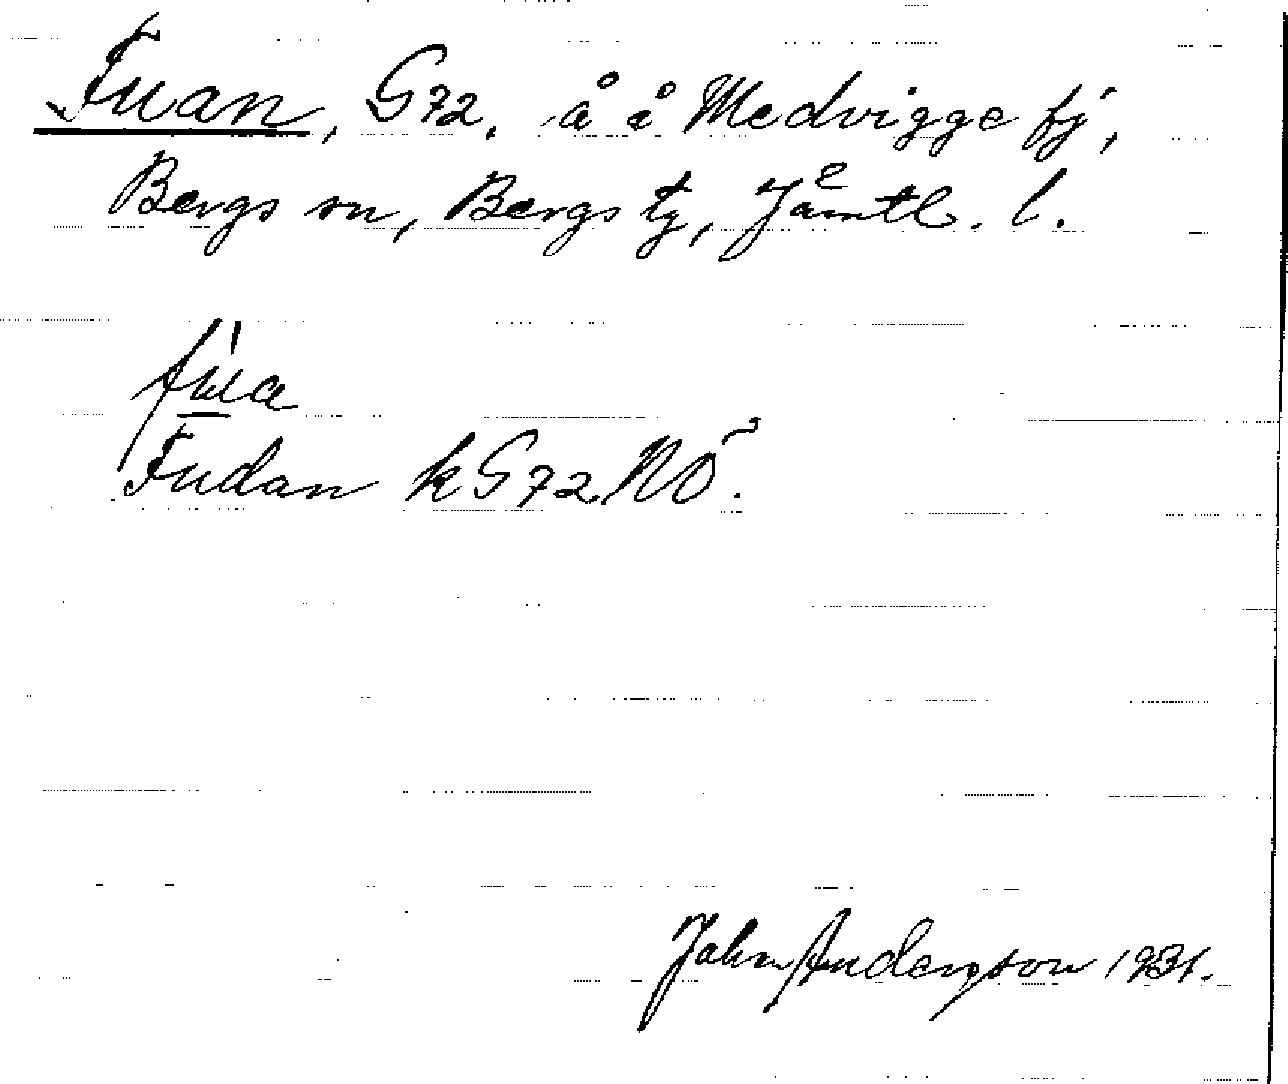 Fuan, G72. å å Medvigge fj,
Bergs sn, Bergs tg, Jämtl. l.
Fudan k G72 NÖ.
John Anderson 1931.